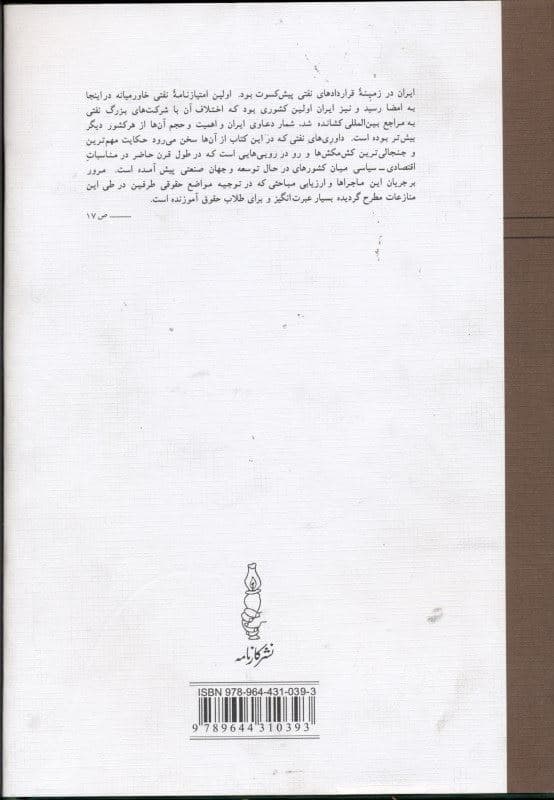 ایران در زمینهٔ قراردادهای نفتی پیش‌کسوت بود. اولین امتیازنامهٔ نفتی خاورمیانه در اینجا
به امضا رسید و نیز ایران اولین کشوری بود که اختلاف آن با شرکت‌های بزرگ نفتی
به مراجع بین‌المللی کشانده شد. شمار دعاوی ایران و اهمیت و حجم آن‌ها از هر کشور دیگر
بیش‌تر بوده است. داوری‌های نفتی که در این کتاب از آن‌ها سخن می‌رود حکایت مهم‌ترین
و جنجالی‌ترین کش‌مکش‌ها و رو در رویی‌هایی است که در طول قرن حاضر در مناسبات
اقتصادی ـ سیاسی میان کشورهای در حال توسعه و جهان صنعتی پیش آمده است. مرور
بر جریان این ماجراها و ارزیابی مباحثی که در توجیه مواضع حقوقی طرفین در طی این
منازعات مطرح گردیده بسیار عبرت‌انگیز و برای طلاب حقوق آموزنده است.
ص ۱۷
نشر کارنامه
ISBN 978-964-431-039-3
9 789644 310393